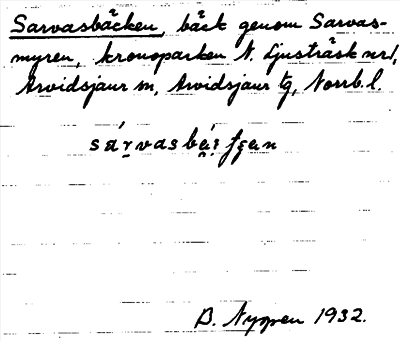 Sarvasbäcken, bäck genom Sarvas-
myren, kronoparken N. Ljusträsk nr 1,
Arvidsjaur sn, Arvidsjaur tg, Norrb. l.
B. Nygren 1932.